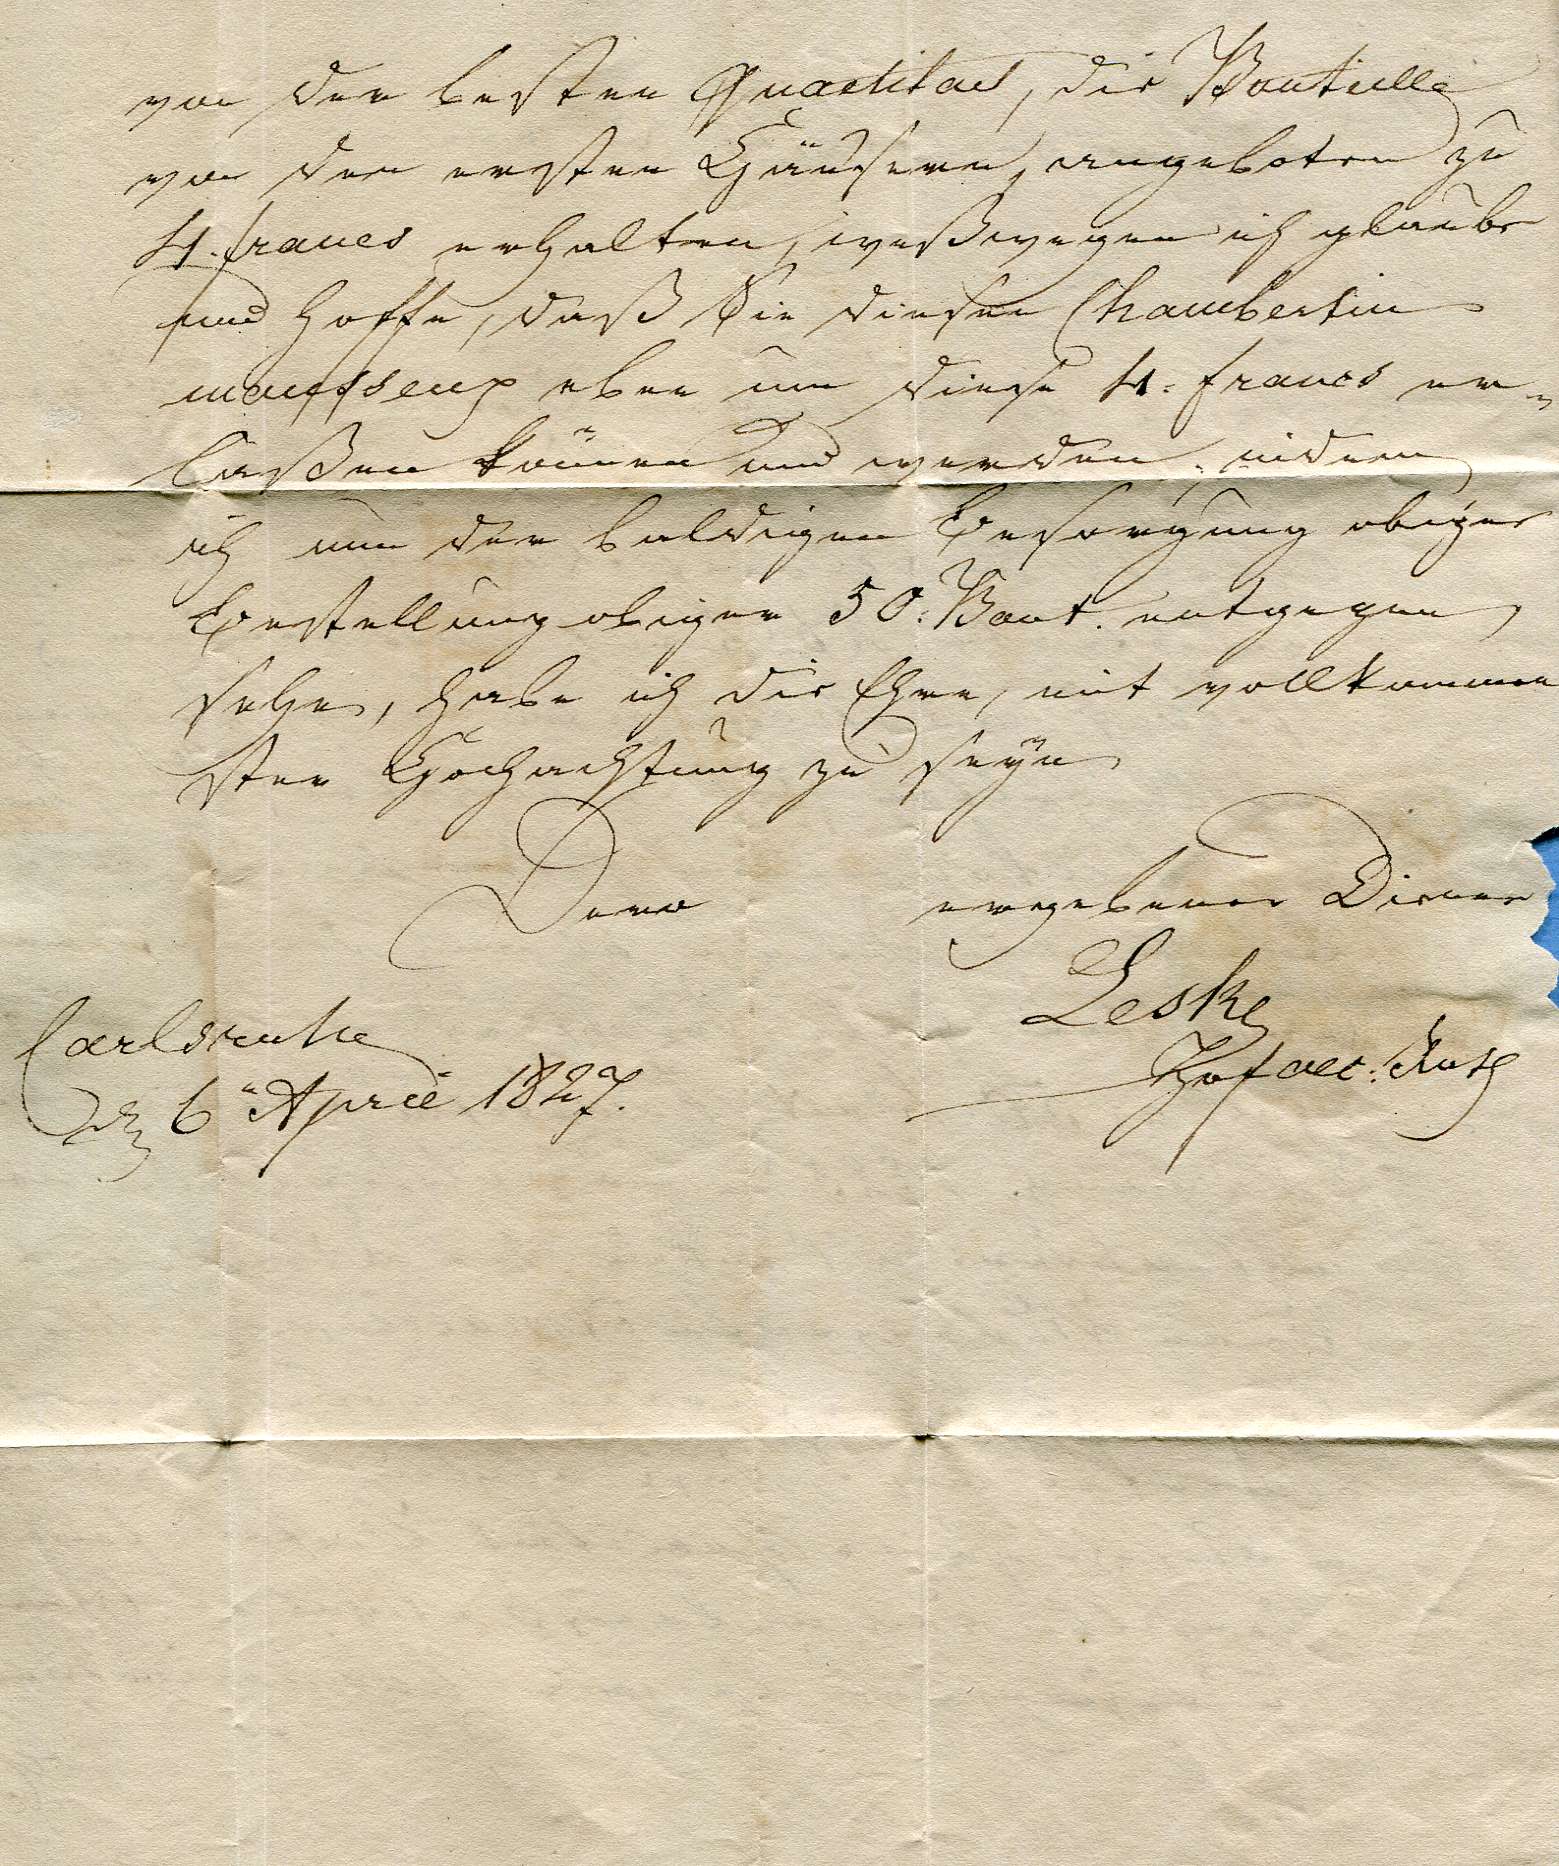 von der besten Quaelitaet, die Bouteille
von den ersten Häusern, angeboten zu
4. francs erhalten, weßwegen ich glaube
und hoffe, daß Sie diesen Chambertin
mousseux eben um diese 4. francs er-
laßen können und werden, indem
ich nun der baldigen Besorgung obiger
Bestellung obiger 50. Bout. entgegen
sehe, habe ich die Ehre, mit vollkommen
ster Hochachtung zu seyn
Dero ergebener Diener
Leske
Carlsruhe Hofoec: Rath
d 6 April 1827.